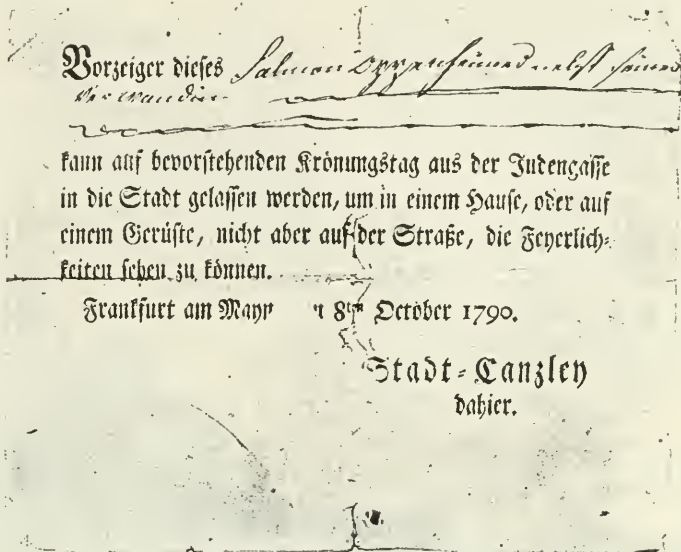 Vorzeiger dieses Salmon Oppenheimer nebst seinen
Verwandten
kann auf bevorstehenden Krönungstag aus der Judengasse
in die Stadt gelassen werden, um in einem Hause, oder auf
einem Gerüste, nicht aber auf der Straße, die Feyerlich⸗
keiten sehen zu können.
Frankfurt am Mayn 8ten October 1790.
Stadt⸗Canzley
dahier.